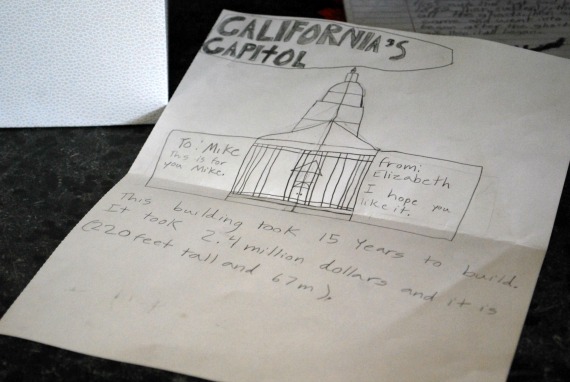 CALIFORNIA'S
CAPITOL
To: Mike
This is for
you Mike.
From:
Elizabeth
I hope you
like it.
This building took 15 Years to build.
It took 2.4 million dollars and it is
(220 feet tall and 67m).